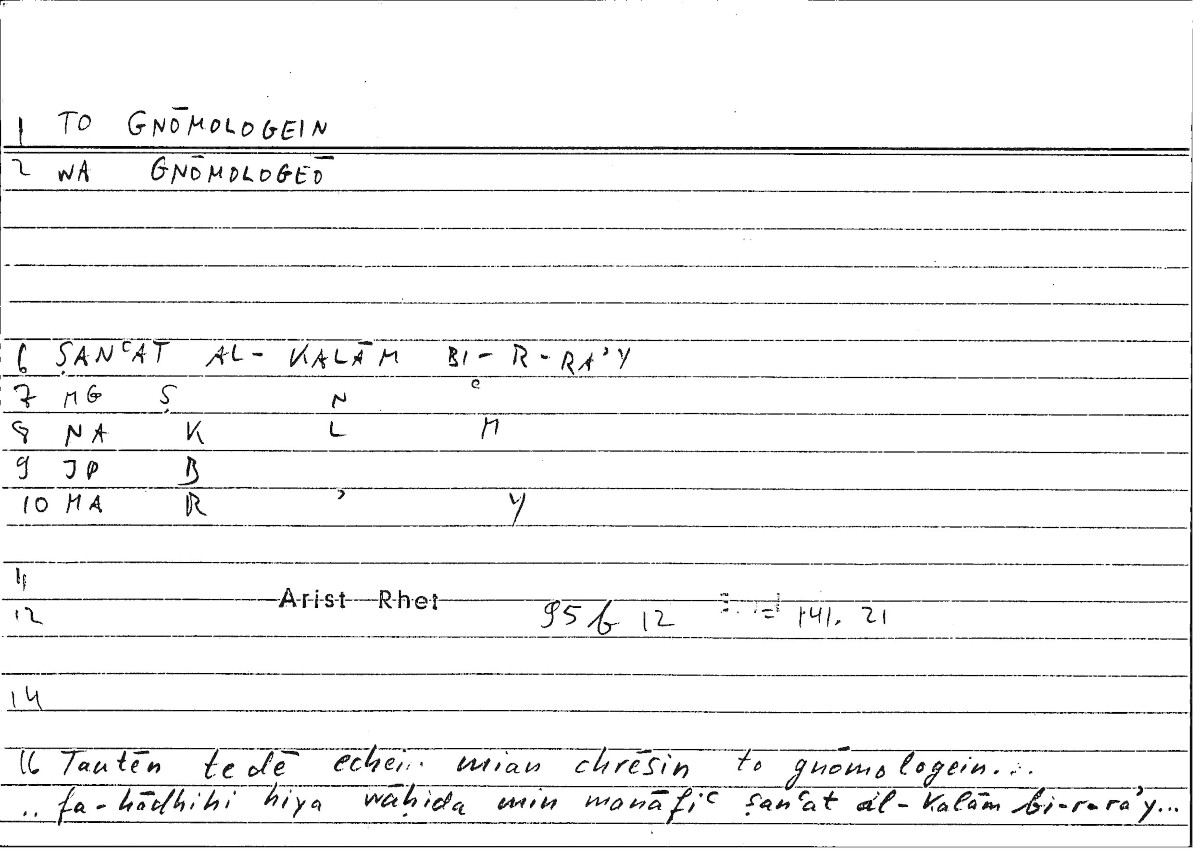 1 TO GNŌMOLOGEIN
2 WA GNŌMOLOGEŌ
6 ṢANʿAT AL-KALĀM BI-R-RAʾY
7 MG Ṣ N ʿ
8 NA K L M
9 JP B
10 MA R ʾ Y
11
12 Arist Rhet 95b 12 = 141. 21
14
16 Tautēn te dē echei.. mian chrēsin to gnōmologein...
.. fa-hādhihi hiya wāḥida min manāfiʿ ṣanʿat al-kalām bi-r-raʾy...